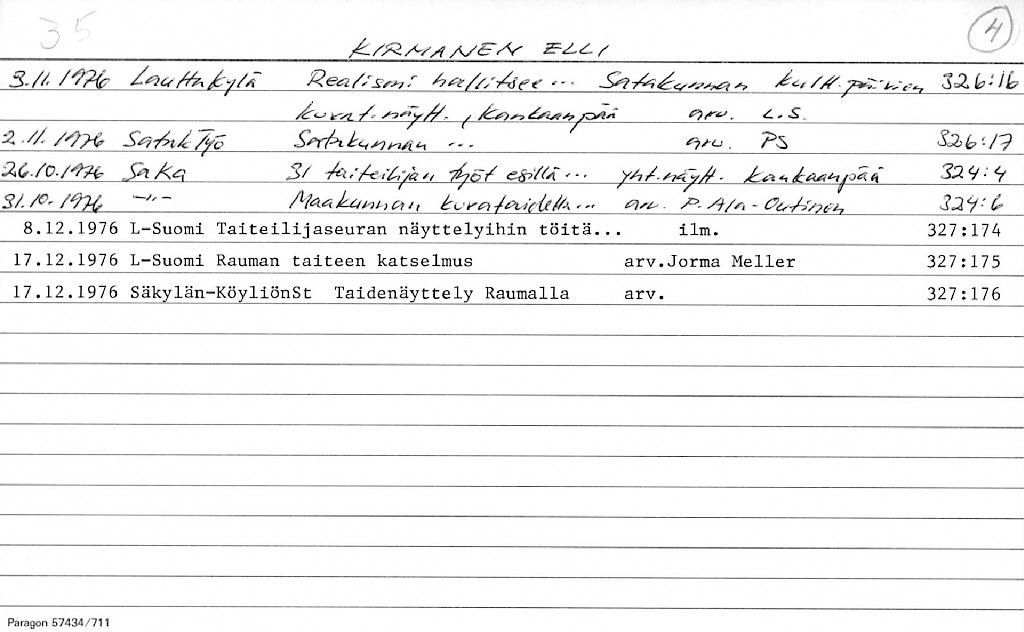 35
4
KIRMANEN ELLI
3.11.1976 Lauttakylä Realismi hallitsee... Satakunnan kultt.päivien 326:16
kuvat.näytt., Kankaanpää arv. L.S.
2.11.1976 SatakTyö Satakunnan ... arv. PS 326:17
26.10.1976 SaKa 31 taiteilijan työt esillä... yht.näytt. Kankaanpää 324:4
31.10.1976 -"- Maakunnan kuvataidetta... arv. P. Ala-Outinen 324:6
8.12.1976 L-Suomi Taiteilijaseuran näyttelyihin töitä... ilm. 327:174
17.12.1976 L-Suomi Rauman taiteen katselmus arv.Jorma Meller 327:175
17.12.1976 Säkylän-KöyliönSt Taidenäyttely Raumalla arv. 327:176
Paragon 57434/711